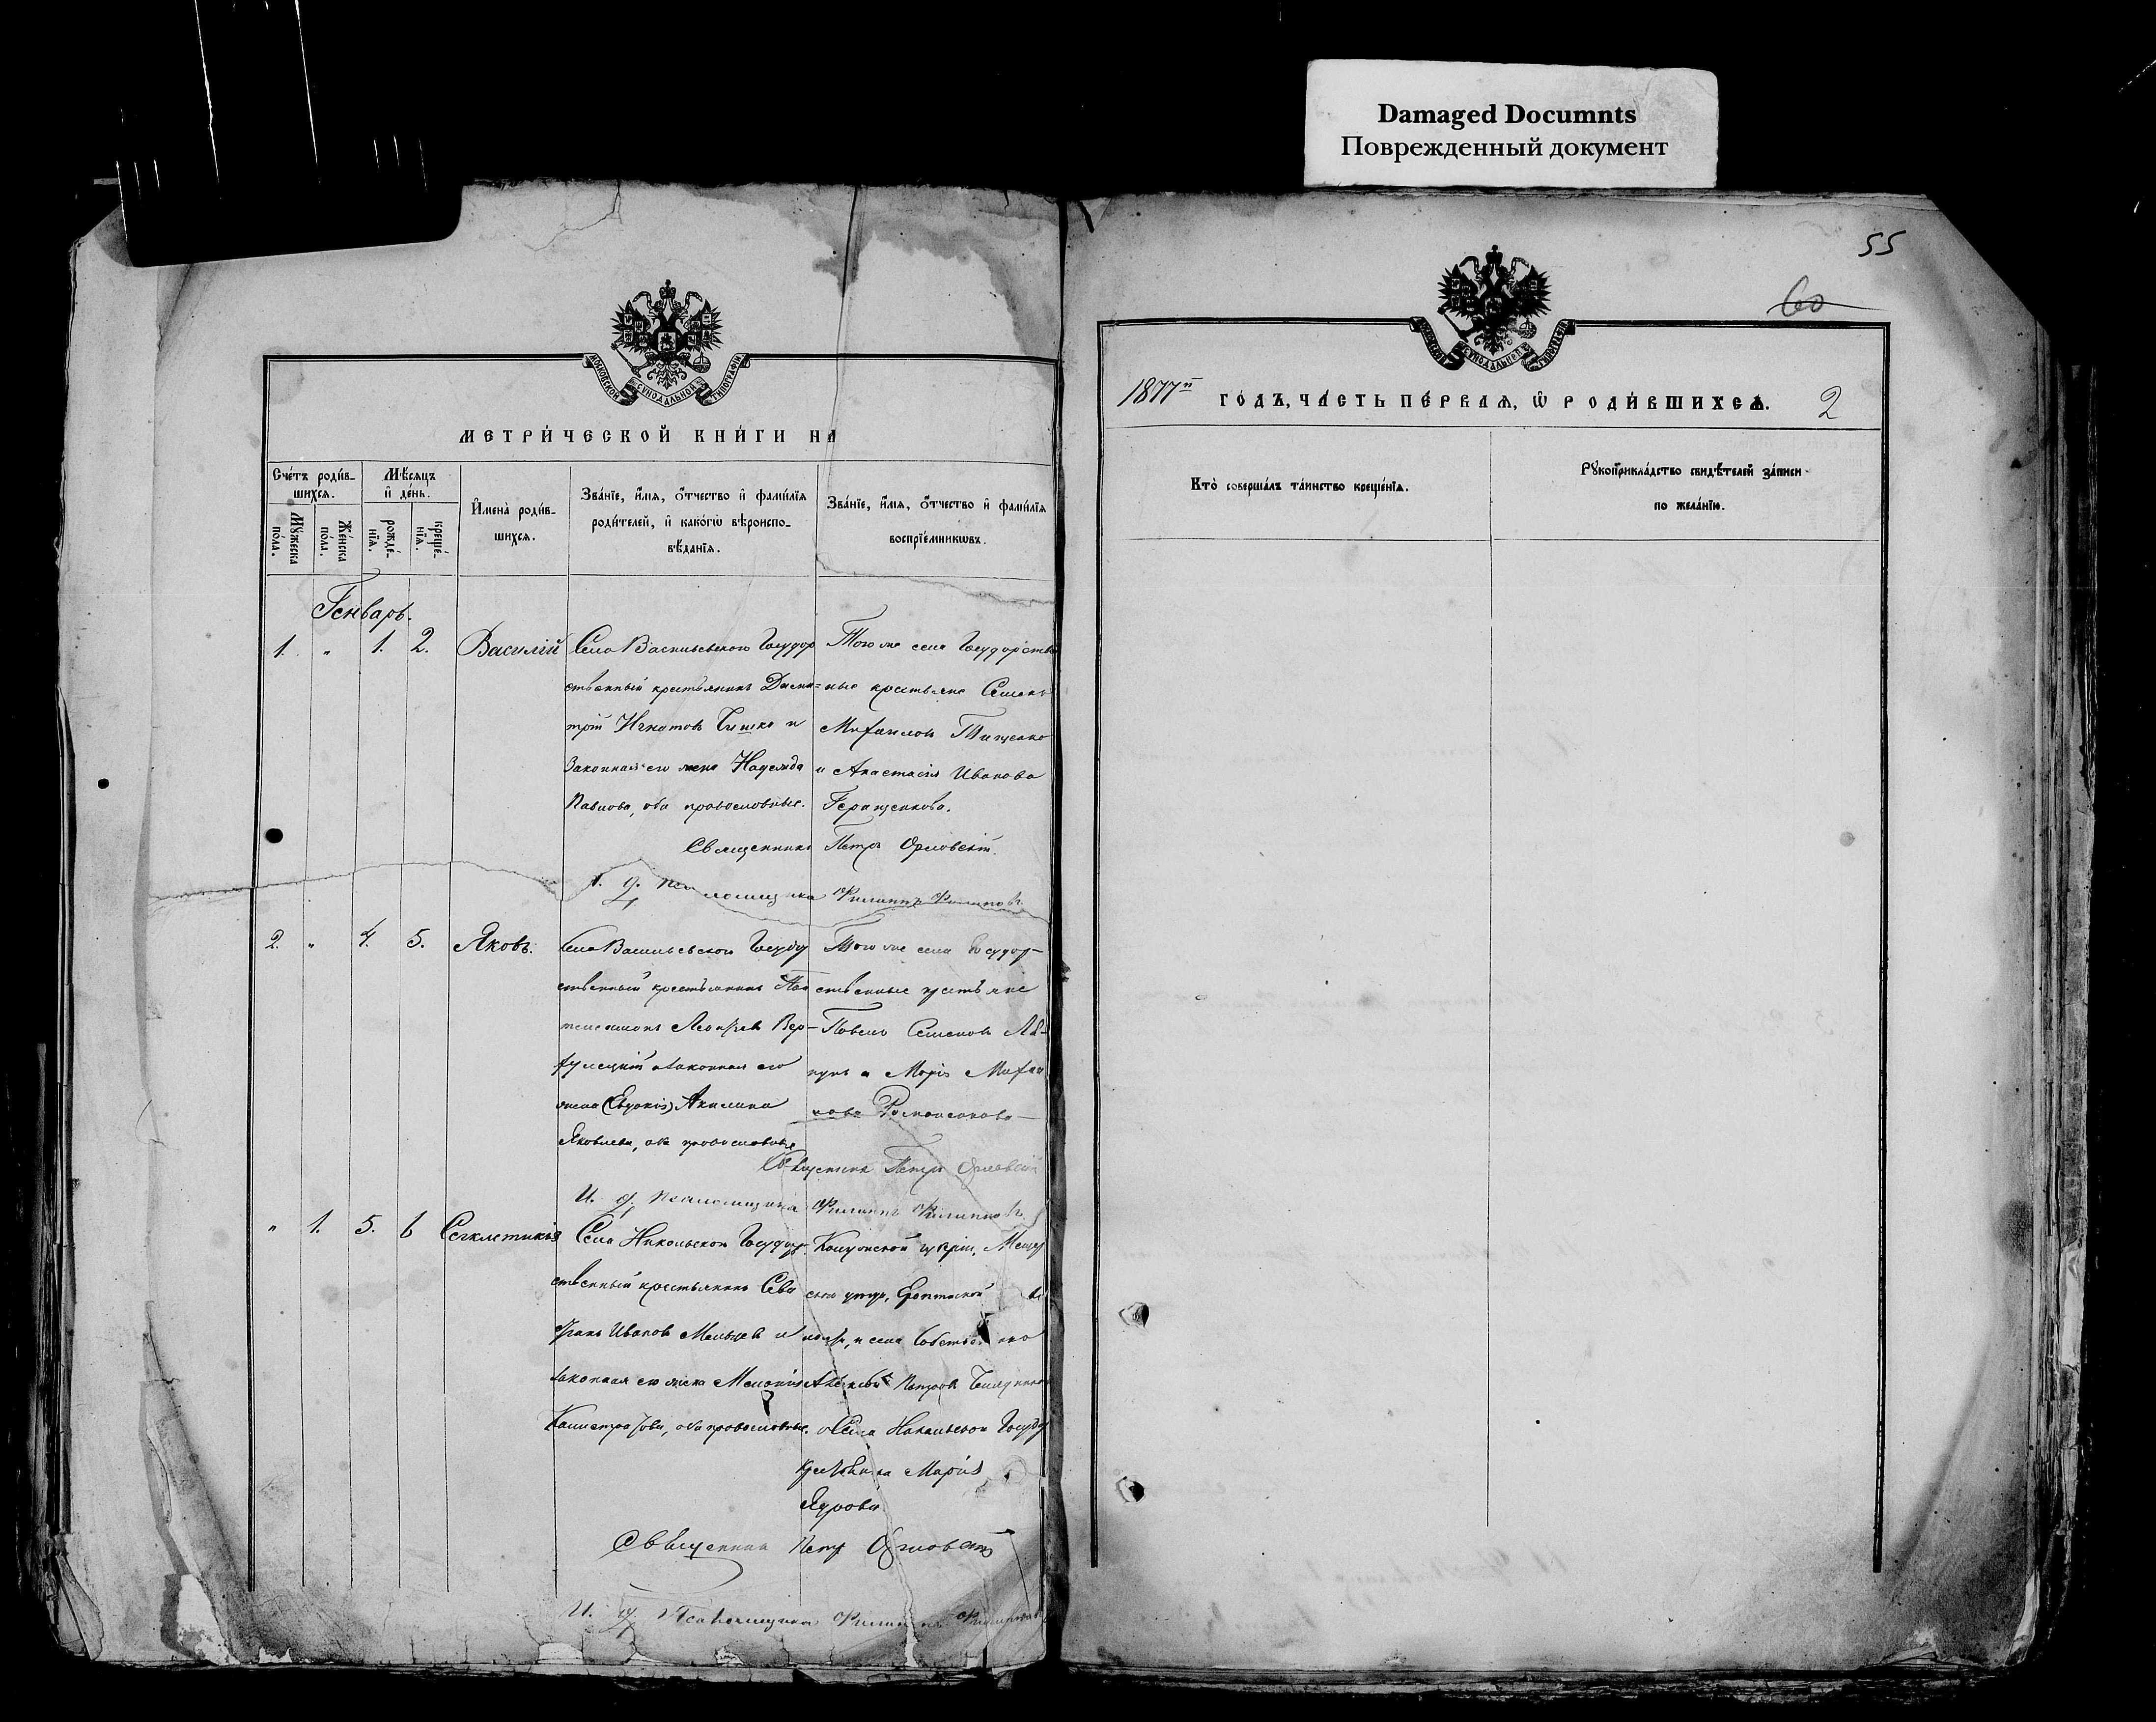 Damaged Documnts
Поврежденный документ
55
60
МОСКОВСКОЙ СѴНОДАЛЬНОЙ ТИПОГРАФІИ
МЕТРИ́ЧЕСКОЙ КНИ́ГИ НА
Сче́тъ роди́в-
шихся.
Мꙋ́жеска по́ла.
Же́нска по́ла.
Мѣ́сяцъ
и҆ де́нь.
рожде́-
нїѧ.
креще́-
нїѧ.
И҆мена̀ роди́в-
шихсѧ.
Зва́нїе, и҆́мѧ, ѻ҆́тчество и҆ фами́лїѧ
роди́телей, и҆ како́гѡ вѣроиспо-
вѣ́данїѧ.
Зва́нїе, и҆́мѧ, ѻ҆́тчество и҆ фами́лїѧ
воспрїе́мникѡвъ.
Генварь.
1. " 1. 2. Василій
Села Васильевского Государ
ственный крестьянинъ Дими-
трій Игнатовъ и
законная его жена Надежда
Павлова, оба православные.
Того же села Государствен
ные крестьяне Семенъ
Михаиловъ Тищенко
и Анастасія Иванова
Геращенкова.
Священникъ Петръ Орловскій.
И. д. псаломщика Филиппъ Филиповъ
2. " 4. 5. Яковъ.
Села Васильевского Государ
ственный крестьянинъ Пан
телеимонъ
законная его
жена (Евдокія) Акилина
Яковлева, оба православные
Того же села Государ-
ственные крестьяне
Павелъ Семеновъ
и Марія Михаи
лова
Священникъ Петръ Орловскій
И. д. псаломщика Филиппъ Филипповъ
" 1. 5. 6 Сегклетикія
Села Никольского Государ
ственный крестьянинъ Сева
Иванов Мальцев и
законная его жена
оба православные.
Калужской губерніи,
села
Петров
и Села Никольского Государ
Марія
Священникъ Петръ Орловскій
И. д. Псаломщика Филиппъ Филипповъ
МОСКОВСКОЙ СѴНОДАЛЬНОЙ ТИПОГРАФІИ
1877й ГО́ДЪ, ЧА́СТЬ ПЕ́РВАѦ, Ѡ҆ РОДИ́ВШИХСѦ. 2
Кто̀ соверша́лъ та́инство креще́нїѧ.
Рꙋкоприкла́дство свидѣ́телей за́писи
по жела́нїю.